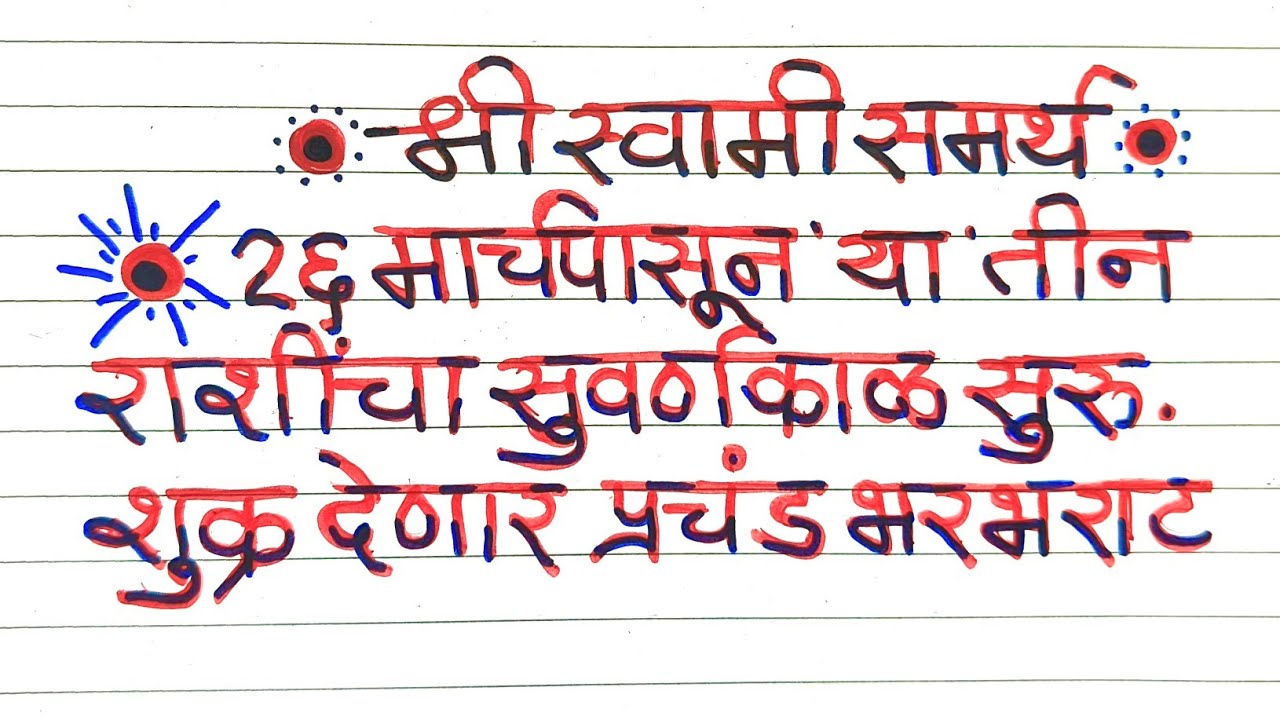 श्री स्वामी समर्थ
२६ मार्चपासून 'या' तीन
राशींचा सुवर्णकाळ सुरु.
शुक्र देणार प्रचंड भरभराट